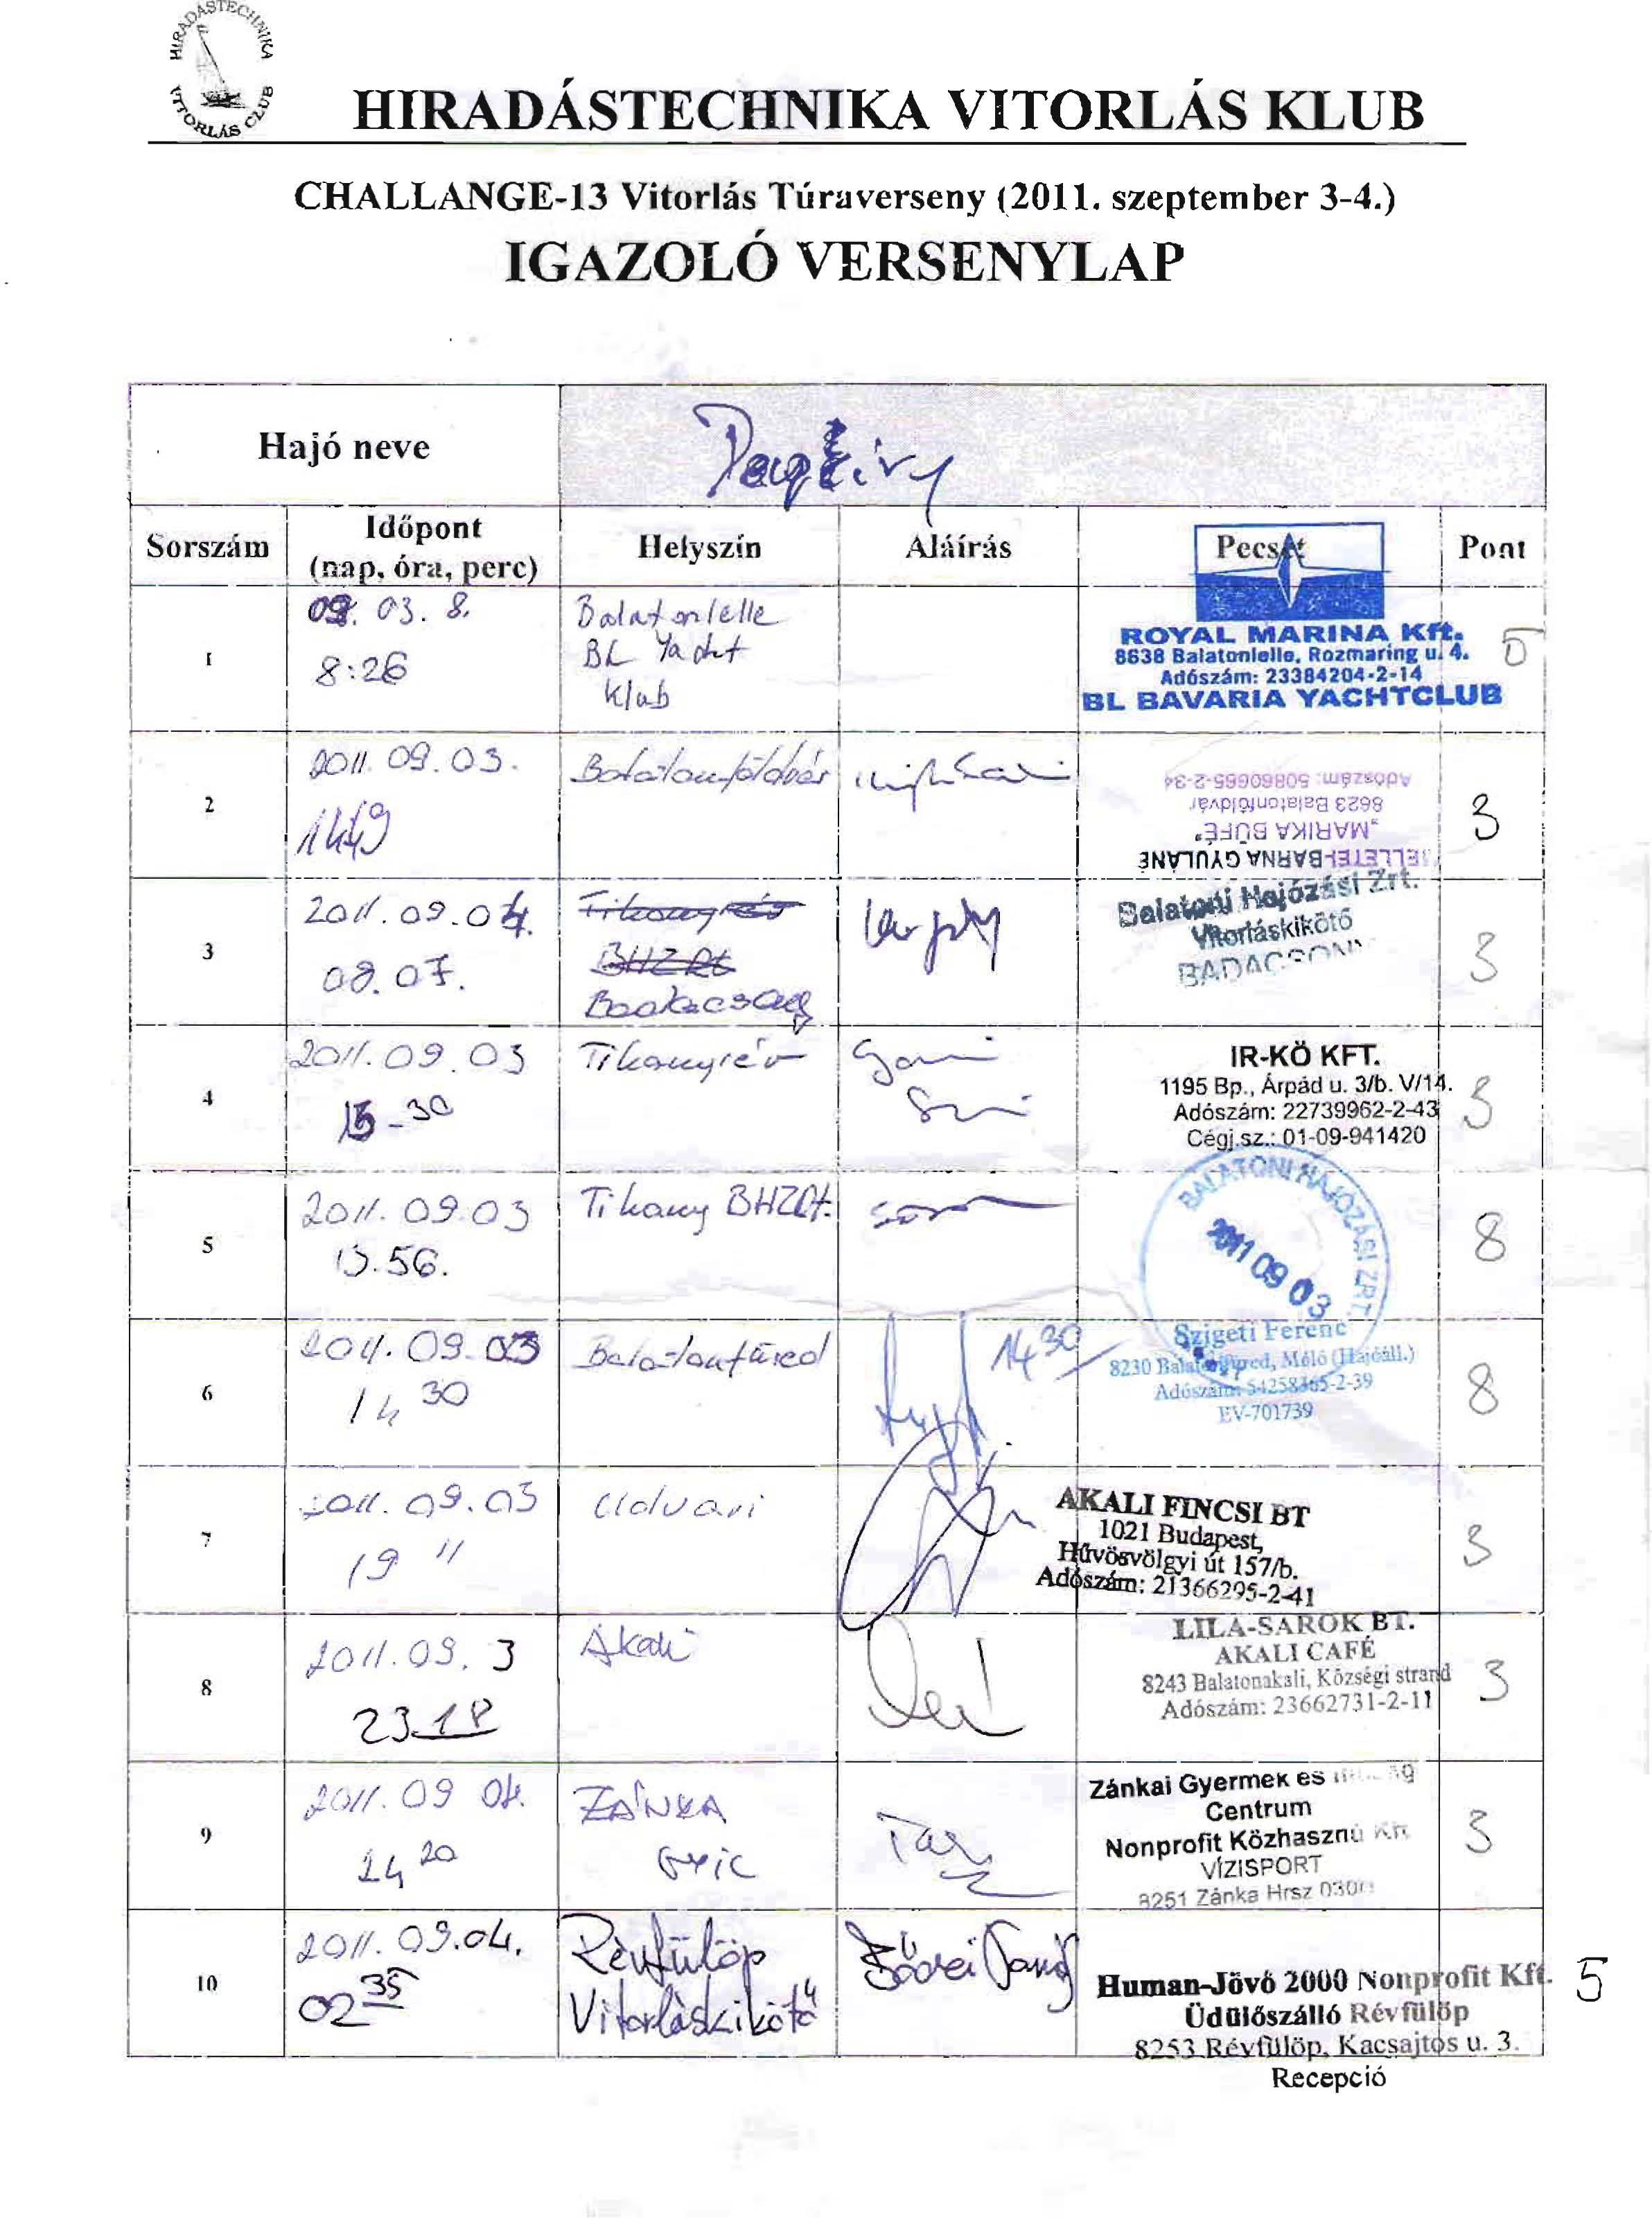 HIRADÁSTECHNIKA
VITORLÁS CLUB
HIRADÁSTECHNIKA VITORLÁS KLUB
CHALLANGE-13 Vitorlás Túraverseny (2011. szeptember 3-4.)
IGAZOLÓ VERSENYLAP
Hajó neve
Sorszám
Időpont
(nap, óra, perc)
Helyszín
Aláírás
Pecsét
Pont
1
09. 03. 8.
8:26
Balatonlelle
BL Yacht
Klub
ROYAL MARINA Kft.
8638 Balatonlelle, Rozmaring u. 4.
Adószám: 23384204-2-14
BL BAVARIA YACHTCLUB
5
2
2011. 09. 03.
Balatonföldvár
BARNA GYULÁNÉ
"MARIKA BÜFÉ"
8623 Balatonföldvár
Adószám: 50860665-2-34
3
3
2011. 09. 04.
08. 07.
Tihanyrév
BHZRt
Badacsony
Balatoni Hajózási Zrt.
Vitorláskikötő
BADACSONY
3
4
2011. 09. 03
15-30
Tihanyrév
IR-KÖ KFT.
1195 Bp., Árpád u. 3/b. V/14.
Adószám: 22739962-2-43
Cégj.sz.: 01-09-941420
3
5
2011. 09. 03
13. 56.
Tihany BHZRt.
BALATONI HAJÓZÁSI ZRT.
2011 09 03
8
6
2011. 09. 03
14 30
Balatonfüred
14 30
Szigeti Ferenc
8230 Balatonfüred, Móló (Hajóáll.)
Adószám: 54258365-2-39
EV-701739
8
7
2011. 09. 03
19 11
Udvari
AKALI FINCSI BT
1021 Budapest,
Hűvösvölgyi út 157/b.
Adószám: 21366295-2-41
3
8
2011. 09. 3
23 18
Akali
LILA-SAROK BT.
AKALI CAFÉ
8243 Balatonakali, Községi strand
Adószám: 23662731-2-11
3
9
2011. 09 04.
14 20
ZÁNKA
GYIC
Zánkai Gyermek és
Centrum
Nonprofit Közhasznú Kft
VÍZISPORT
8251 Zánka Hrsz
3
10
2011. 09. 04.
02 35
Révfülöp
Vitorláskikötő
Human-Jövő 2000 Nonprofit Kft.
Üdülőszálló Révfülöp
8253 Révfülöp, Kacsajtos u. 3.
Recepció
5